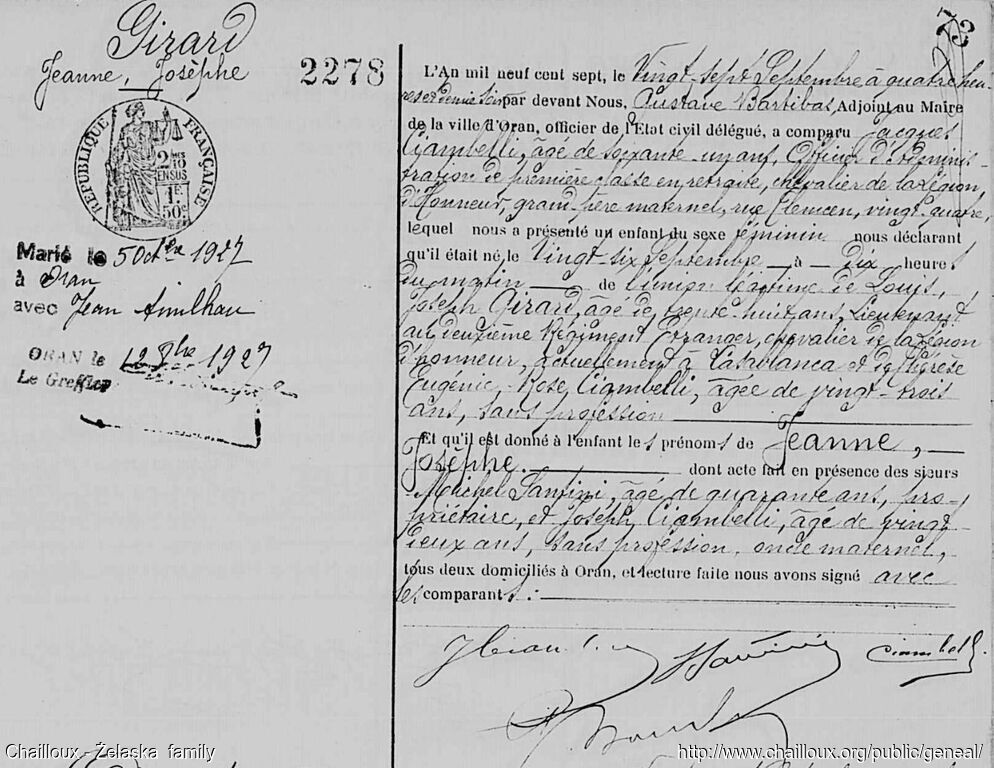 Girard
Jeanne, Josèphe
2278
73
RÉPUBLIQUE FRANÇAISE
2/10 EN SUS
1F 50c
Marié le 5 Octbre 1927
à Oran
avec Jean
ORAN le 12 8bre 1927
Le Greffier
L'An mil neuf cent sept, le Vingt-sept Septembre à quatre heu-
res et demie soir par devant Nous, Gustave Bartibas, Adjoint au Maire
de la ville d'Oran, officier de l'Etat civil délégué, a comparu Jacques
Ciambelli, âgé de soixante-un ans, Officier d'Adminis-
tration de première classe en retraite, chevalier de la Légion
d'Honneur, grand-père maternel, rue Tlemcen, vingt-quatre,
lequel nous a présenté un enfant du sexe féminin nous déclarant
qu'il était né, le Vingt-six Septembre à Dix heures
du matin de l'union légitime de Louis,
Joseph Girard, âgé de trente-huit ans, Lieutenant
au deuxième Régiment Etranger, chevalier de la Légion
d'honneur, actuellement à Casablanca et de
Eugénie-Rose Ciambelli, âgée de vingt-trois
ans, sans profession
Et qu'il est donné à l'enfant les prénoms de Jeanne,
Josèphe. dont acte fait en présence des sieurs
Michel Santini, âgé de quarante ans, pro-
priétaire, et Joseph Ciambelli, âgé de vingt-
deux ans, sans profession, oncle maternel,
tous deux domiciliés à Oran, et lecture faite nous avons signé avec
les comparants:
Santini Ciambelli
Chailloux - Żelaska family
http://www.chailloux.org/public/geneal/